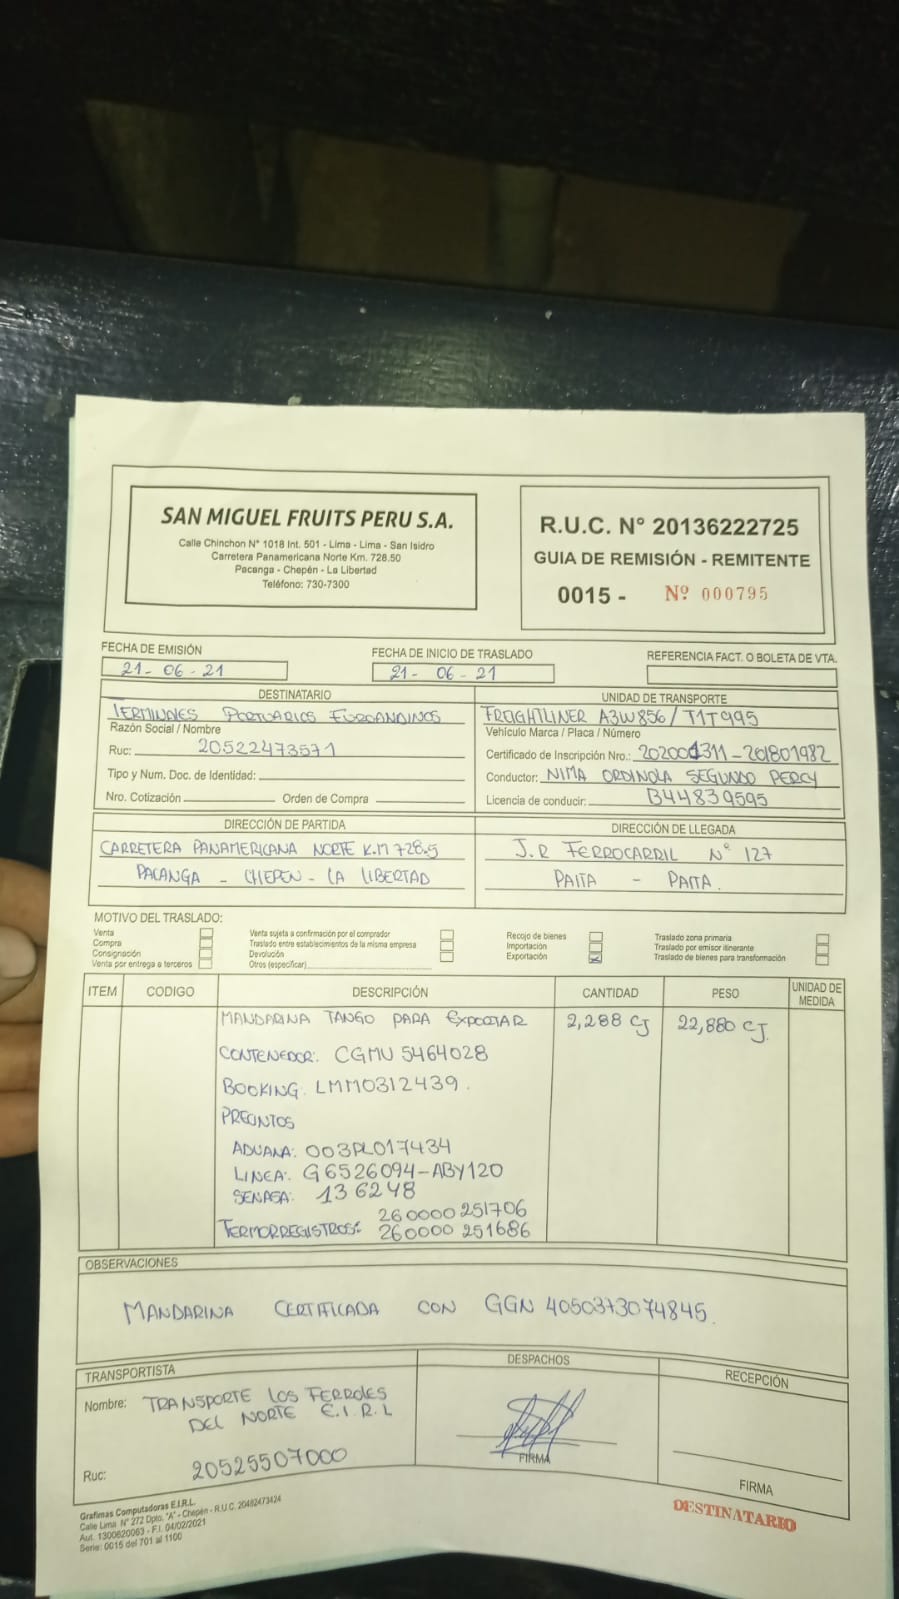 SAN MIGUEL FRUITS PERU S.A.
Calle Chinchon N° 1018 Int. 501 - Lima - Lima - San Isidro
Carretera Panamericana Norte Km. 728.50
Pacanga - Chepén - La Libertad
Teléfono: 730-7300
R.U.C. N° 20136222725
GUIA DE REMISIÓN - REMITENTE
0015 - Nº 000795
FECHA DE EMISIÓN
21-06-21
FECHA DE INICIO DE TRASLADO
21-06-21
REFERENCIA FACT. O BOLETA DE VTA.
DESTINATARIO
TERMINALES PORTUARIOS EUROANDINOS
Razón Social / Nombre
Ruc: 20522473571
Tipo y Num. Doc. de Identidad:
Nro. Cotización Orden de Compra
UNIDAD DE TRANSPORTE
FREIGHTLINER A3W856/T1T995
Vehículo Marca / Placa / Número
Certificado de Inscripción Nro.: 202004311-201801982
Conductor: NIMA ORDINOLA SEGUNDO PERCY
Licencia de conducir: B44839595
DIRECCIÓN DE PARTIDA
CARRETERA PANAMERICANA NORTE K.M 728.5
PACANGA - CHEPEN - LA LIBERTAD
DIRECCIÓN DE LLEGADA
J.R FERROCARRIL N° 127
PAITA - PAITA.
MOTIVO DEL TRASLADO:
Venta
Compra
Consignación
Venta por entrega a terceros
Venta sujeta a confirmación por el comprador
Traslado entre establecimientos de la misma empresa
Devolución
Otros (especificar)
Recojo de bienes
Importación
Exportación
Traslado zona primaria
Traslado por emisor itinerante
Traslado de bienes para transformación
ITEM CODIGO DESCRIPCIÓN CANTIDAD PESO UNIDAD DE MEDIDA
MANDARINA TANGO PARA EXPORTAR 2,288 CJ 22,880 CJ.
CONTENEDOR: CGMU 5464028
BOOKING: LMM0312439.
PRECINTOS
ADUANA: 003PL017434
LINEA: G6526094-ABY120
SENASA: 136248
260000251706
TERMORREGISTROS: 260000251686
OBSERVACIONES
MANDARINA CERTIFICADA CON GGN 4050373074845.
TRANSPORTISTA
Nombre: TRANSPORTE LOS FERROLES
DEL NORTE E.I.R.L
Ruc: 20525507000
DESPACHOS
FIRMA
RECEPCIÓN
FIRMA
Grafimas Computadoras E.I.R.L.
Calle Lima N° 272 Dpto. "A" - Chepén - R.U.C. 20482473424
Aut. 1300620063 - F.I. 04/02/2021
Serie: 0015 del 701 al 1100
DESTINATARIO